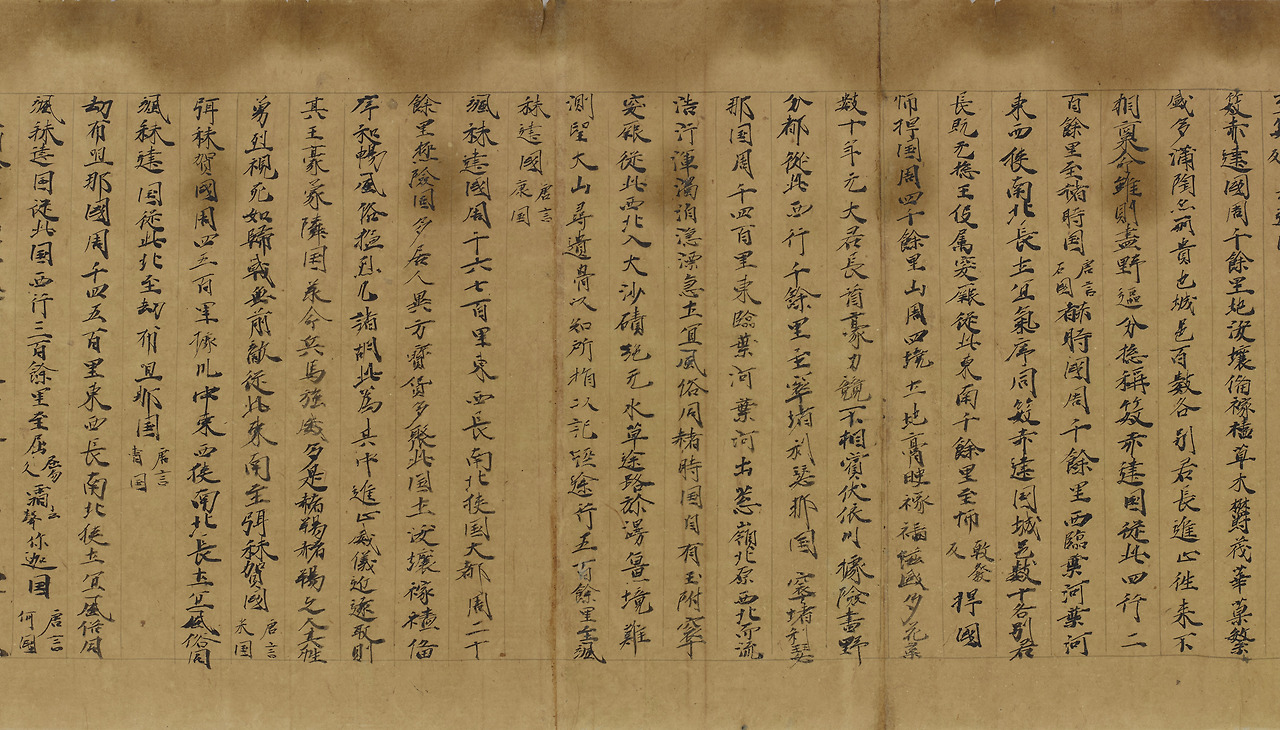 笯赤建國周千餘里地沃壤備稼穡草木欝茂華菓繁
盛多蒲陶亦所貴也城邑百數各別君長進止往來不
相稟命雖則畫野區分捴稱笯赤建国從此西行二
百餘里至赭時国唐言石国赭時國周千餘里西臨葉河葉河
東西狹南北長土宜氣序同笯赤建国城邑數十各別君
長既无捴王伇属突厥從此東南千餘里至㤄敷發反捍國
㤄捍国周四千餘里山周四境土地膏腴稼穡滋盛多花菓
數十年无大君長酋豪力競不相賓伏依川據險畫野
分都從此西行千餘里至窣堵利瑟那国窣堵利瑟
那国周千四百里東臨葉河葉河出葱嶺北原西北而流
浩汗渾濁汨淴漂急土宜風俗同赭時国自有王附窣
突厥從此西北入大沙磧絶无水草途路弥漫畺境難
測望大山尋遺骨以知所指以記逕途行五百餘里至颯
秣建國唐言康国
颯秣建國周千六七百里東西長南北狹国大都周二十
餘里極險固多居人異方寳貨多聚此国土沃壤稼穡備
序和暢風俗猛烈凡諸胡此為其中進止威儀近遠取則
其王豪隣国羕命兵馬強盛多是赭羯赭羯之人其性
勇烈視死如歸戦無前敵從此東南至弭秣賀國唐言米国
弭秣賀國周四五百里據川中東西狹南北長土宜風俗同
颯秣建国從此北至却布呾那国唐言曹国
却布呾那國周千四五百里東西長南北狹土宜風俗同
颯秣建国從此国西行三百餘里至屈霜聲你迦国唐言何国